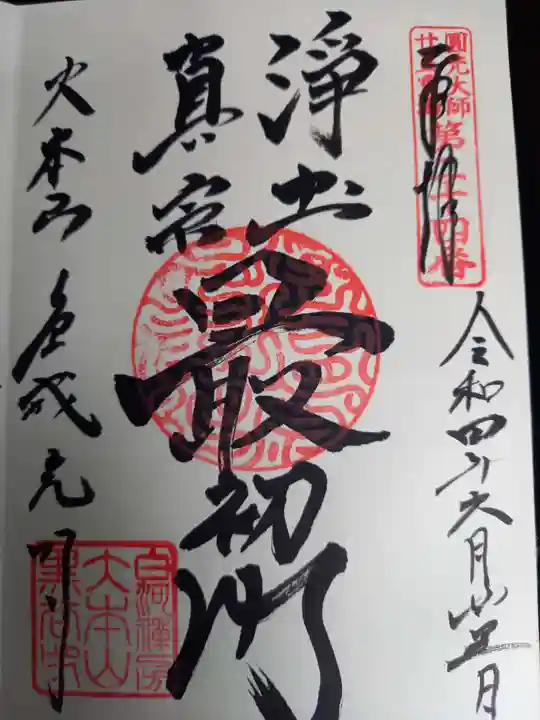 圓光大師
廿五霊場
第二十四番
奉拝
令和四年六月廿五日
浄土
真宗
最初門
大本山
金戒光明
白河禅房
大本山
黒谷